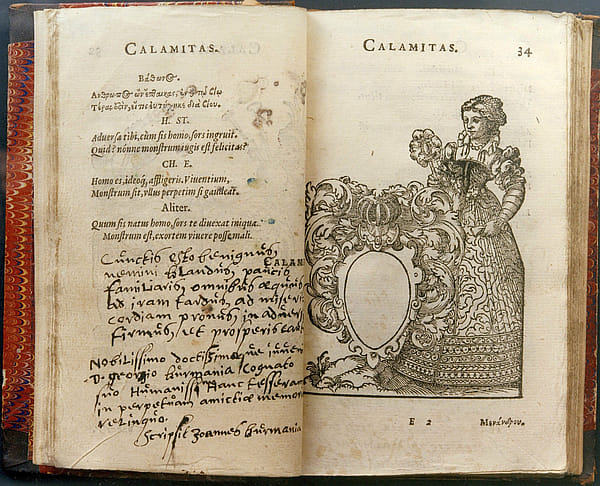 CALAMITAS.
H. ST.
Adversa tibi, cùm sis homo, sors ingruit.
Quid? nónne monstrum iugis est felicitas?
CH. E.
Homo es, ideóq, affligeris. Viventium,
Monstrum sit, ullus perpetim si gaudeat.
Aliter.
Quum sis natus homo, sors te diuexat iniqua.
Monstrum est, exortem vivere posse mali.
CALAM
Cunctis esto benignus
nemini blandus, paucis
familiaris omnibus æquus
ad iram tardus, ad miseri
cordiam pronus, in adver
firmus, et prosperis
Nobilissimo doctissimoque
D. Georgio Burmania Cognato
suo Humaniss. Hanc tesseram
in perpetuam amicitiæ memo
relinquo.
Scripsit Joannes Burmania
CALAMITAS.
34
E 2